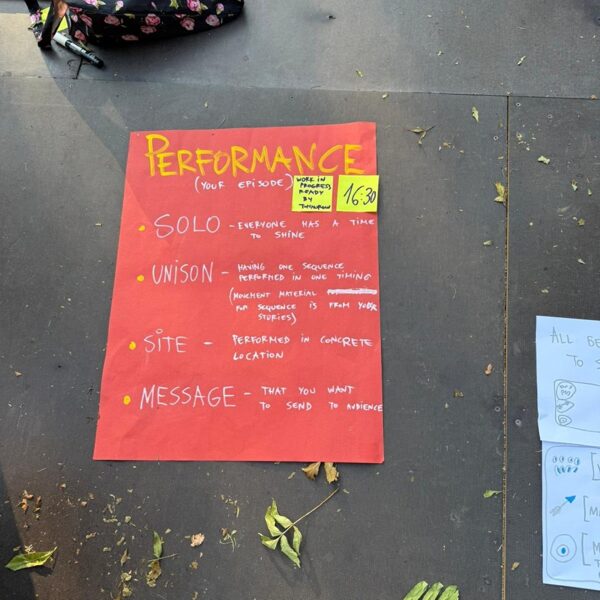 PERFORMANCE
(YOUR EPISODE)
WORK IN
PROGRESS
READY
BY
TOMORROW
16:30
SOLO - EVERYONE HAS A TIME
TO SHINE
UNISON - HAVING ONE SEQUENCE
PERFORMED IN ONE TIMING
(MOVEMENT MATERIAL
FOR SEQUENCE IS FROM YOUR
STORIES)
SITE - PERFORMED IN CONCRETE
LOCATION
MESSAGE - THAT YOU WANT
TO SEND TO AUDIENCE
ALL
TO